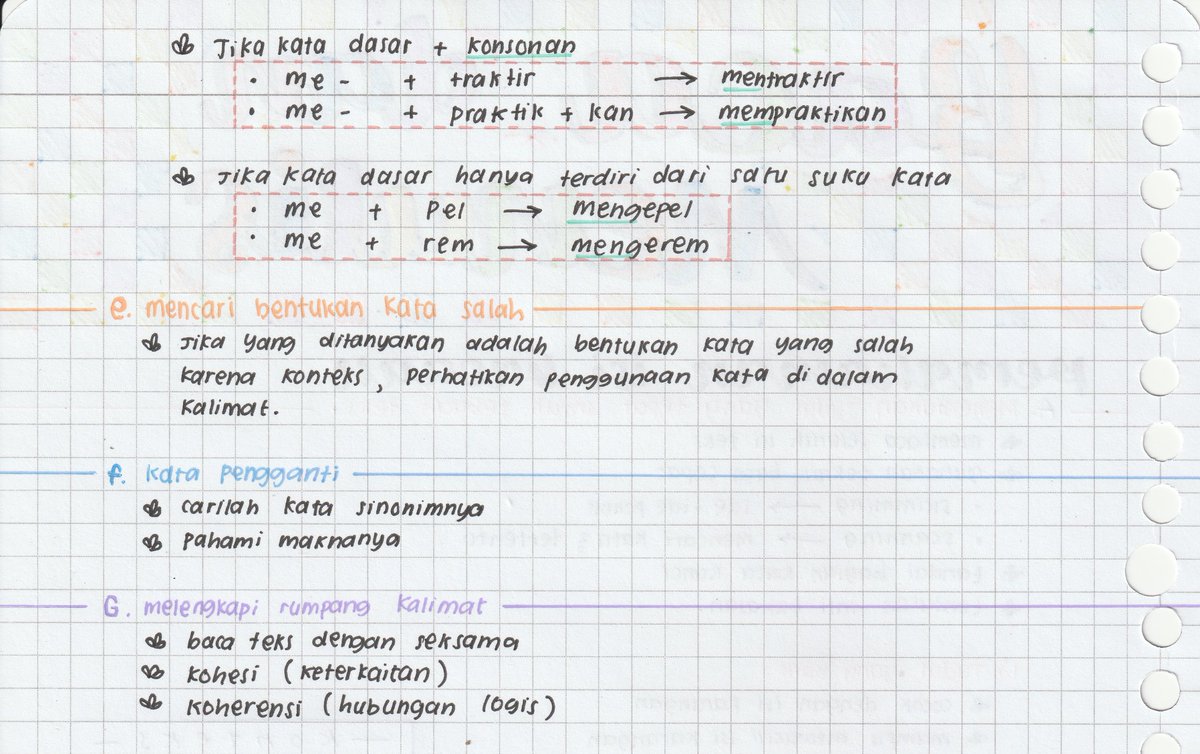 Jika kata dasar + konsonan
• me - + traktir → mentraktir
• me - + praktik + kan → mempraktikan
Jika kata dasar hanya terdiri dari satu suku kata
• me + pel → mengepel
• me + rem → mengerem
e. mencari bentukan kata salah
Jika yang ditanyakan adalah bentukan kata yang salah
karena konteks, perhatikan penggunaan kata di dalam
kalimat.
f. kata pengganti
carilah kata sinonimnya
pahami maknanya
G. melengkapi rumpang kalimat
baca teks dengan seksama
kohesi (keterkaitan)
koherensi (hubungan logis)